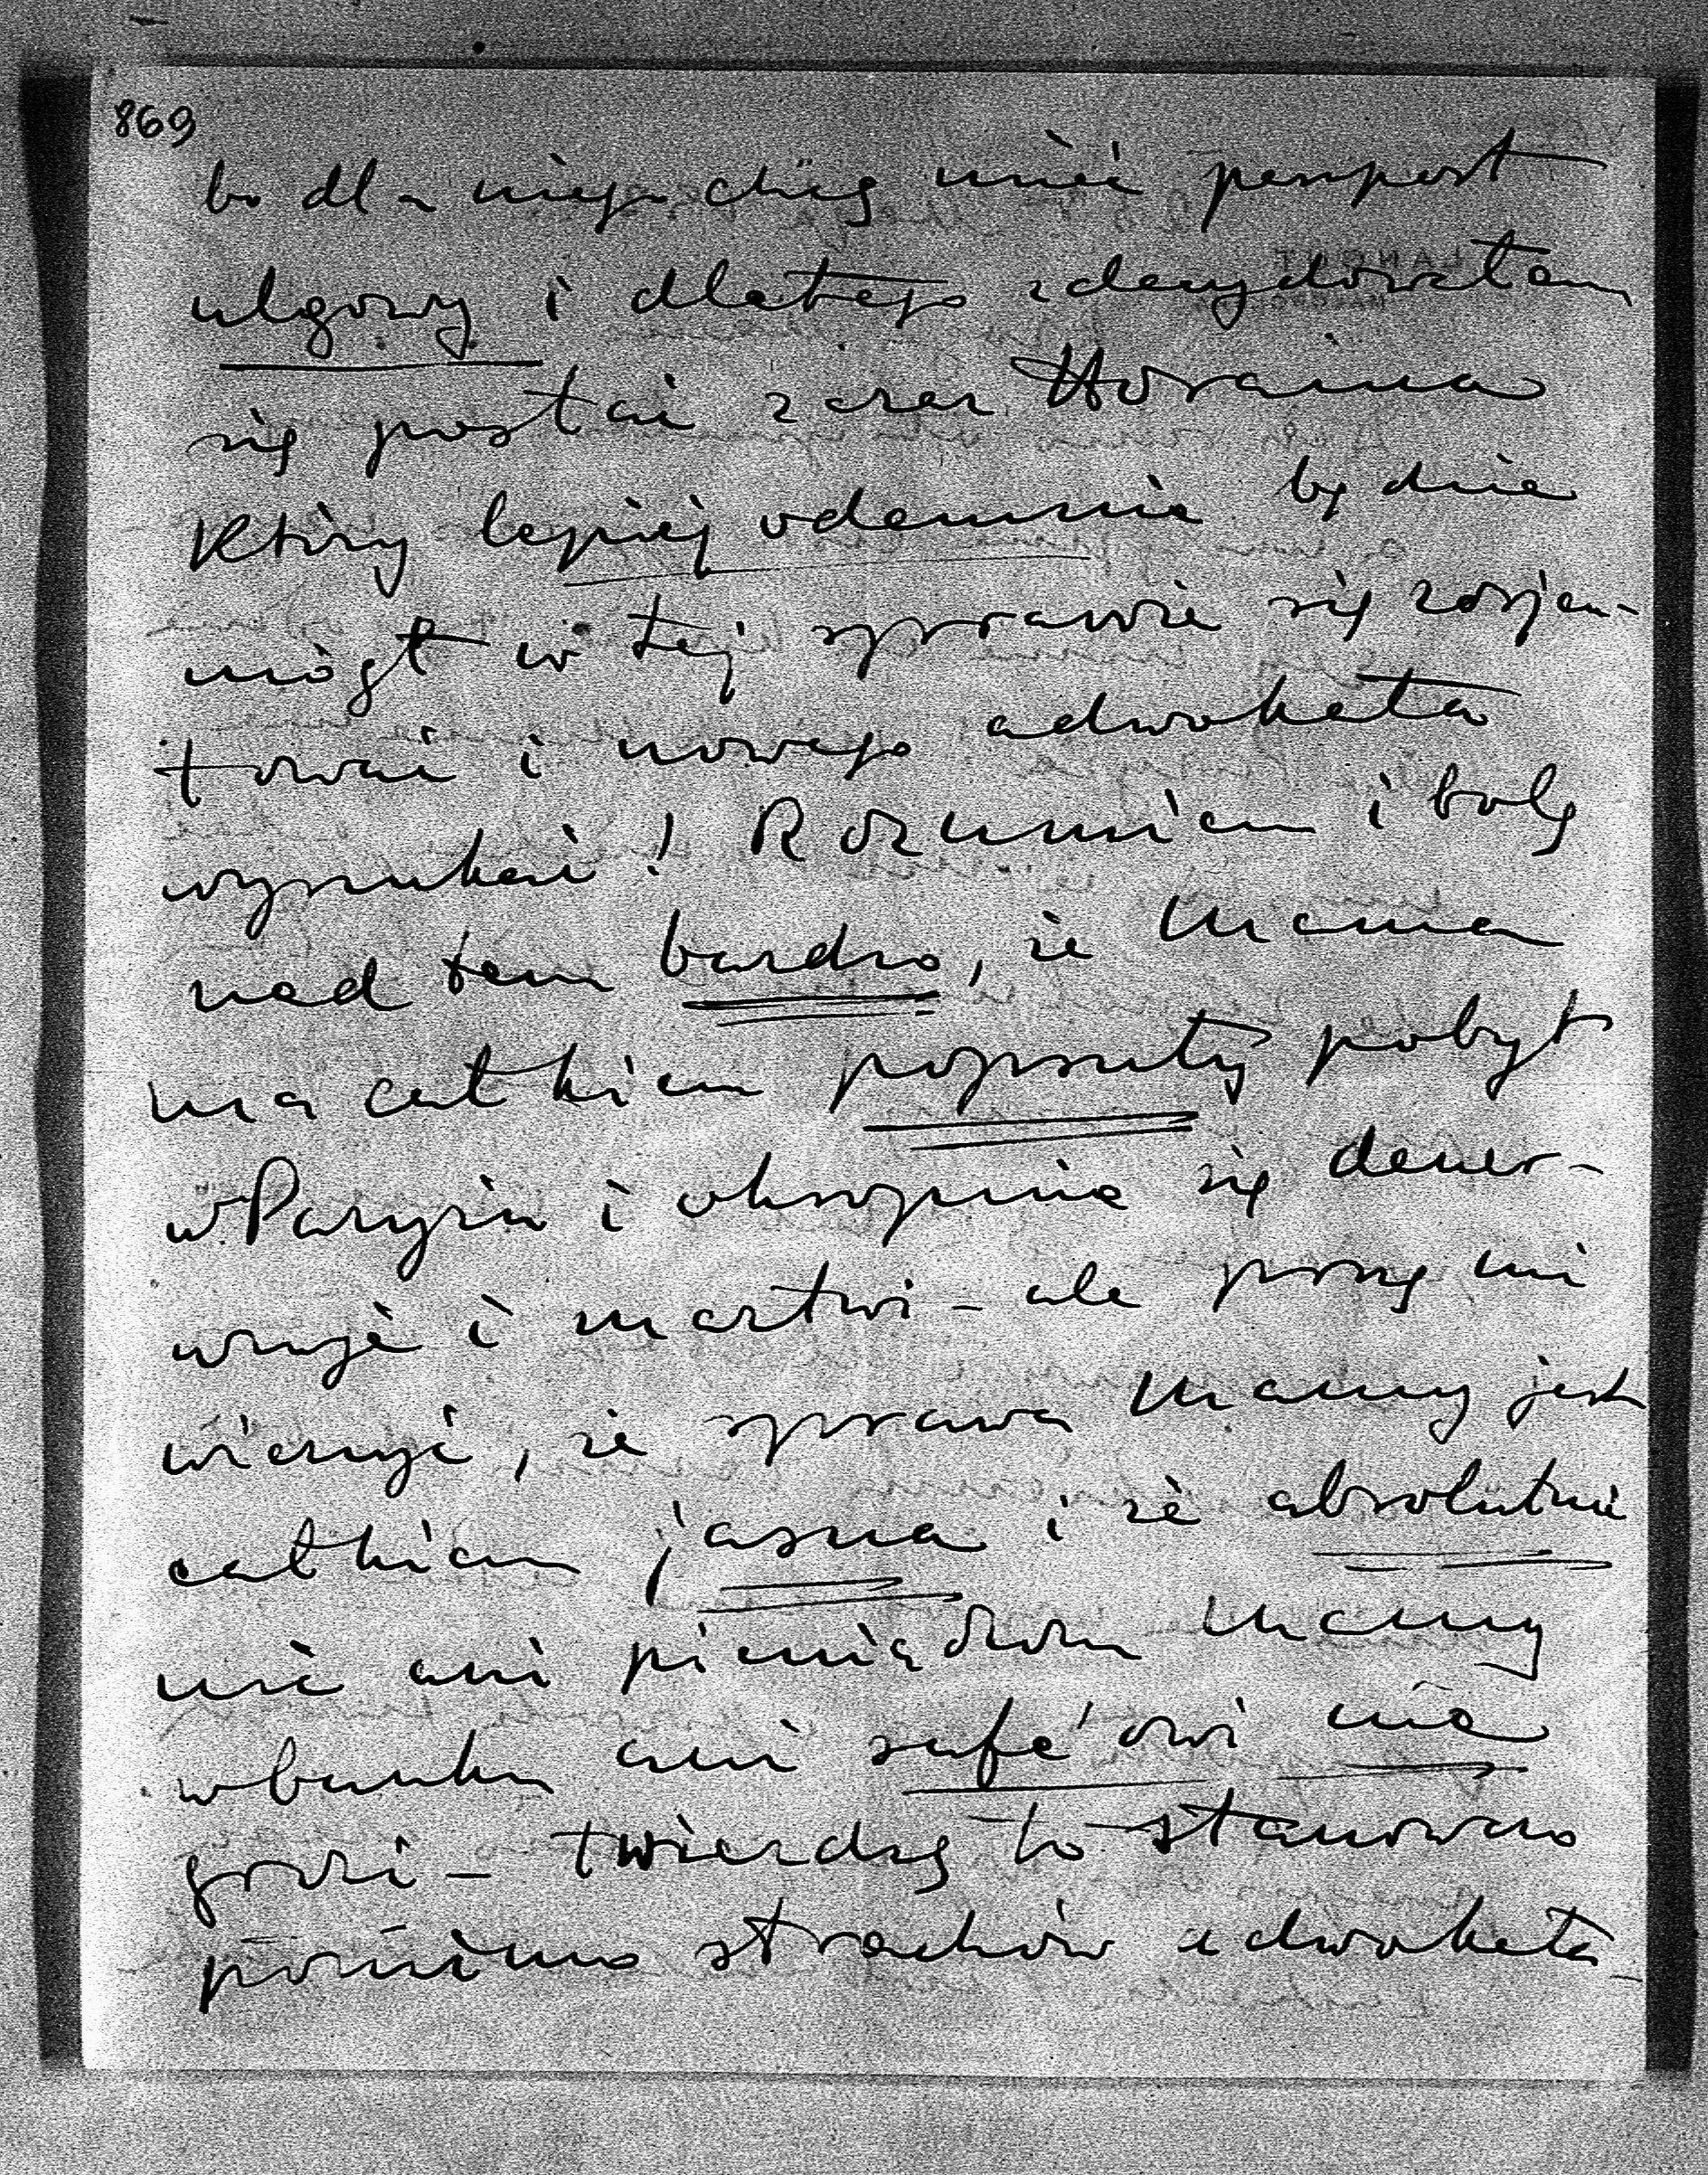 869
bo dla niego chcę mieć paszport
ulgowy i dlatego zdecydowałem
się posłać zaraz Horaina
który lepiej odemnie będzie
mógł w tej sprawie się zorjen-
tować i nowego adwokata
wyszukać! Rozumiem i boleję
nad tem bardzo, że Mama
ma całkiem popsuty pobyt
w Paryżu i okropnie się dener-
wuje i martwi – ale proszę mi
wierzyć, że sprawa Mamy jest
całkiem jasna i że absolutnie
nic ani pieniądzom Mamy
w banku ani safe'owi nie
grozi – twierdzę to stanowczo
pomimo strachów adwokata